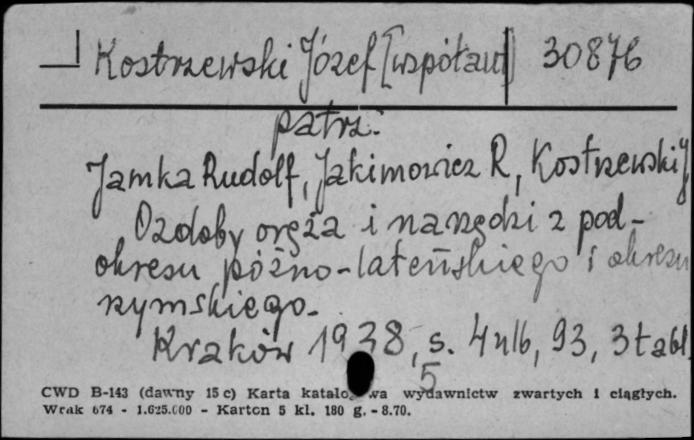 Kostrzewski Józef [współaut] 30876
patrz:
Jamka Rudolf, Jakimowicz R, Kostrzewski J
Ozdoby oręża i narzędzi z pod-
okresu późno-lateńskiego i okresu
rzymskiego.
Kraków 1938, s. 4nlb, 93, 3tabl.
5
CWD B-143 (dawny 15c) Karta katalogowa wydawnictw zwartych i ciągłych.
Wrak 674 - 1.625.000 - Karton 5 kl. 180 g. - 8.70.